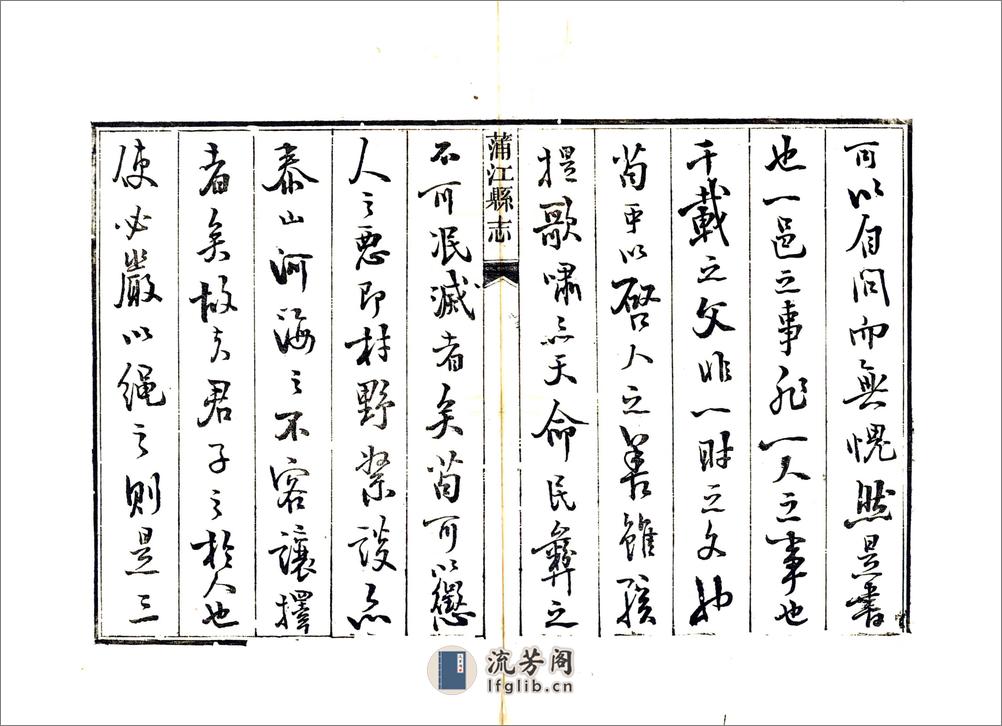 可以自問而無愧然是書
也一邑之事非一人之事也
千載之文非一時之文也
苟可以啓人之善雖孩
提歌嘯亦天命民彝之
蒲江縣志
不可泯滅者矣苟可以懲
人之惡即村野絮談亦
泰山河海之不容讓擇
者矣故夫君子之於人也
使必嚴以繩之則是三
流芳阁
lfglib.cn